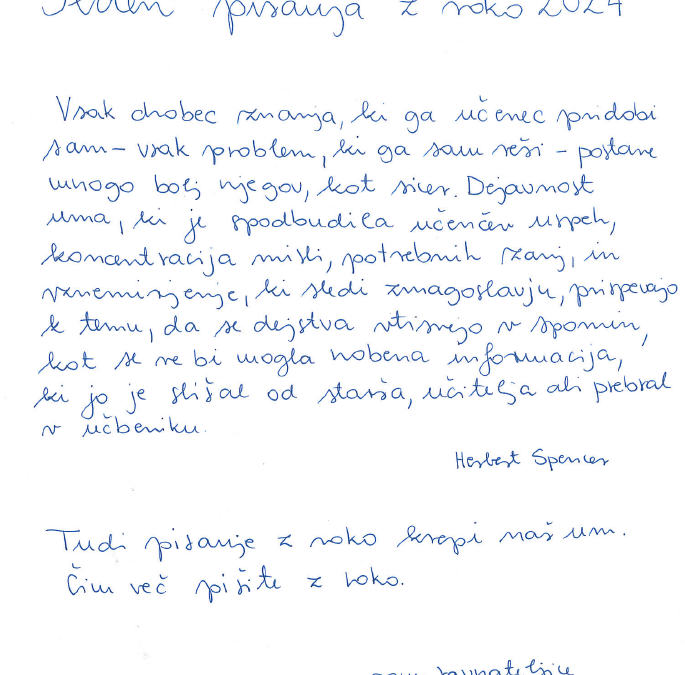 Teden pisanja z roko 2024
Vsak drobec znanja, ki ga učenec pridobi
sam – vsak problem, ki ga sam reši – postane
mnogo bolj njegov, kot sicer. Dejavnost
uma, ki je spodbudila učenčev uspeh,
koncentracija misli, potrebnih zanj, in
vznemirjenje, ki sledi zmagoslavju, prispevajo
k temu, da se dejstva vtisnejo v spomin,
kot se ne bi mogla nobena informacija,
ki jo je slišal od starša, učitelja ali prebral
v učbeniku.
Herbert Spencer
Tudi pisanje z roko krepi naš um.
Čim več pišite z roko.
ravnateljice